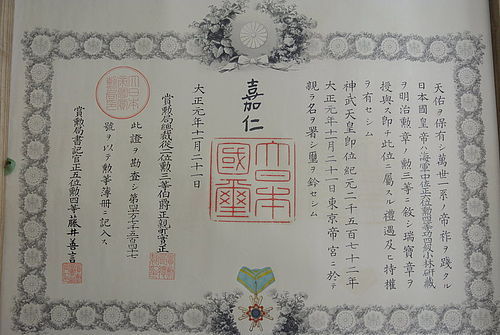 天佑ヲ保有シ萬世一系ノ帝祚ヲ踐タル
日本國皇帝ハ海軍中佐正六位勲四等功四級小林研藏
ヲ明治勲章ノ勲三等ニ敍シ瑞寶章ヲ
授與ス即チ此位ニ屬スル禮遇及ヒ特權
ヲ有セシム
神武天皇即位紀元二千五百七十二年
大正元年十一月二十一日東京帝宮ニ於テ
親ラ名ヲ署シ璽ヲ鈐セシム
嘉仁
大日本國璽
大正元年十一月二十一日
賞勲局總裁從二位勲三等伯爵正親町實正
此證ヲ勘査シ第四万七千五百四十七
號ヲ以テ勲等簿冊ニ記入ス
賞勲局書記官正五位勲四等藤井善言